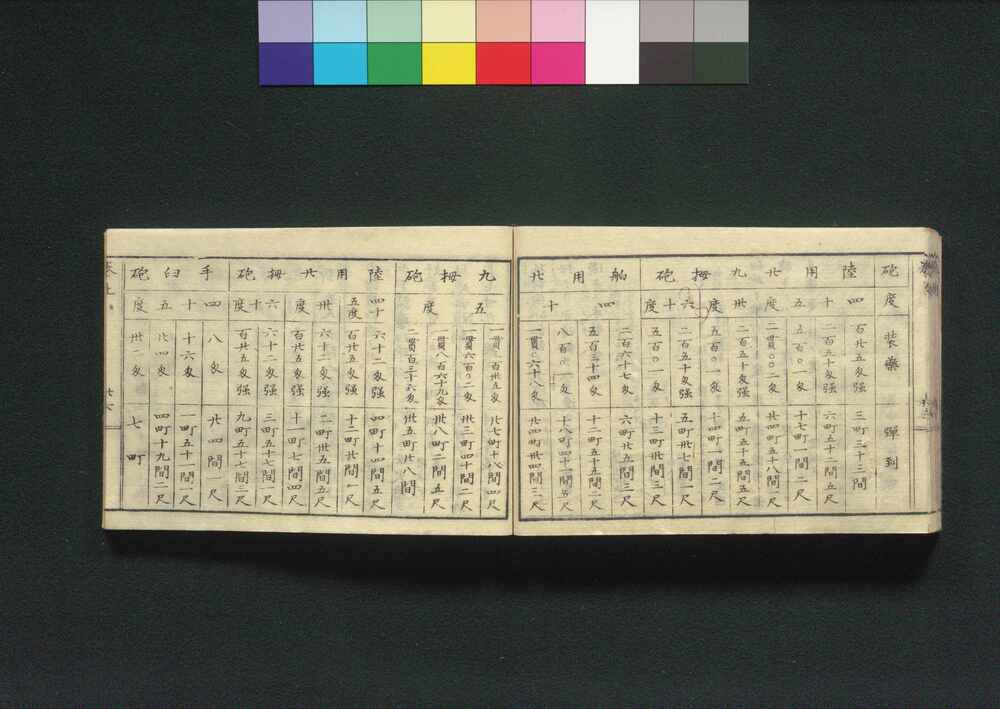 砲度装薬弾到
陸用廿九拇砲
四十五度
百廿五匁強 三町三十三間
二百五十匁強 六町四十二間五尺
五百〇一匁 十七町一間二尺
二貫〇〇二匁 廿四町五十八間一尺
卅度
二百五十匁強 五町五十五間五尺
五百〇一匁 十四町一間二尺
六十度
二百五十匁強 五町卅七間一尺
五百〇一匁 十三町卅間三尺
舶用廿
四十
二百六十七匁 六町三間三尺
五百三十四匁 十二町五十五間二尺
八百〇一匁 十八町四十一間五尺
一貫〇六十八匁 廿四町卅四間三尺
九拇砲
五度
一貫三百卅五匁 廿七町十八間四尺
一貫六百〇二匁 卅三町四十間二尺
一貫八百六十九匁 卅八町二間五尺
二貫百三十六匁 卅五町廿八間
陸用廿拇砲
四十五度
六十二匁強 四町十四間五尺
百廿五匁強 十二町廿間一尺
卅度
六十二匁強 二町卅五間五尺
百廿五匁強 十一町七間四尺
六十度
六十二匁強 三町五十七間一尺
百廿五匁強 九町五十七間三尺
手臼砲
四十五度
八匁 廿四間一尺
十六匁 一町五十一間一尺
廿四匁 四町十九間二尺
卅二匁 七町